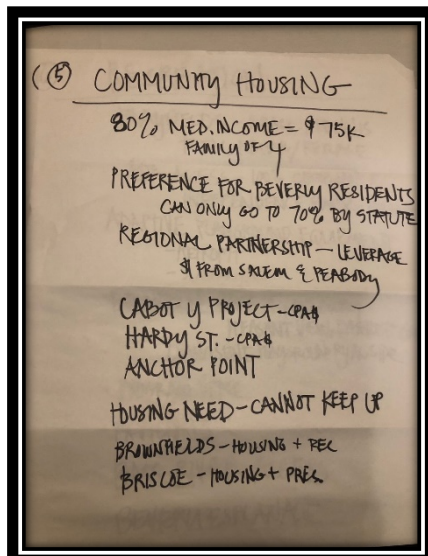 (⑤ COMMUNITY HOUSING
80% MED. INCOME = $75K
FAMILY OF 4
PREFERENCE FOR BEVERLY RESIDENTS
CAN ONLY GO TO 70% BY STATUTE
REGIONAL PARTNERSHIP - LEVERAGE
$ FROM SALEM & PEABODY
CABOT Y PROJECT - CPA$
HARDY ST. - CPA$
ANCHOR POINT
HOUSING NEED - CANNOT KEEP UP
BROWNFIELDS - HOUSING + REC
BRISCOE - HOUSING + PRES.